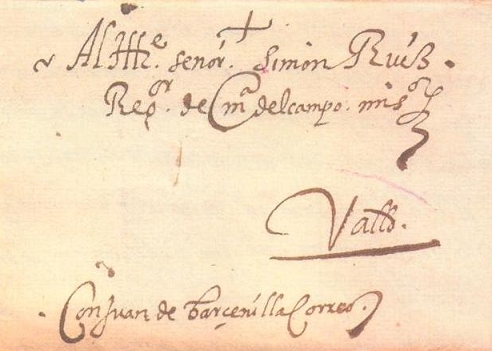 Al Ille. señor. simon Ruiz.
Regor. de Ma del campo. mi sor
Valld.
Con Juan de barçenilla Correo